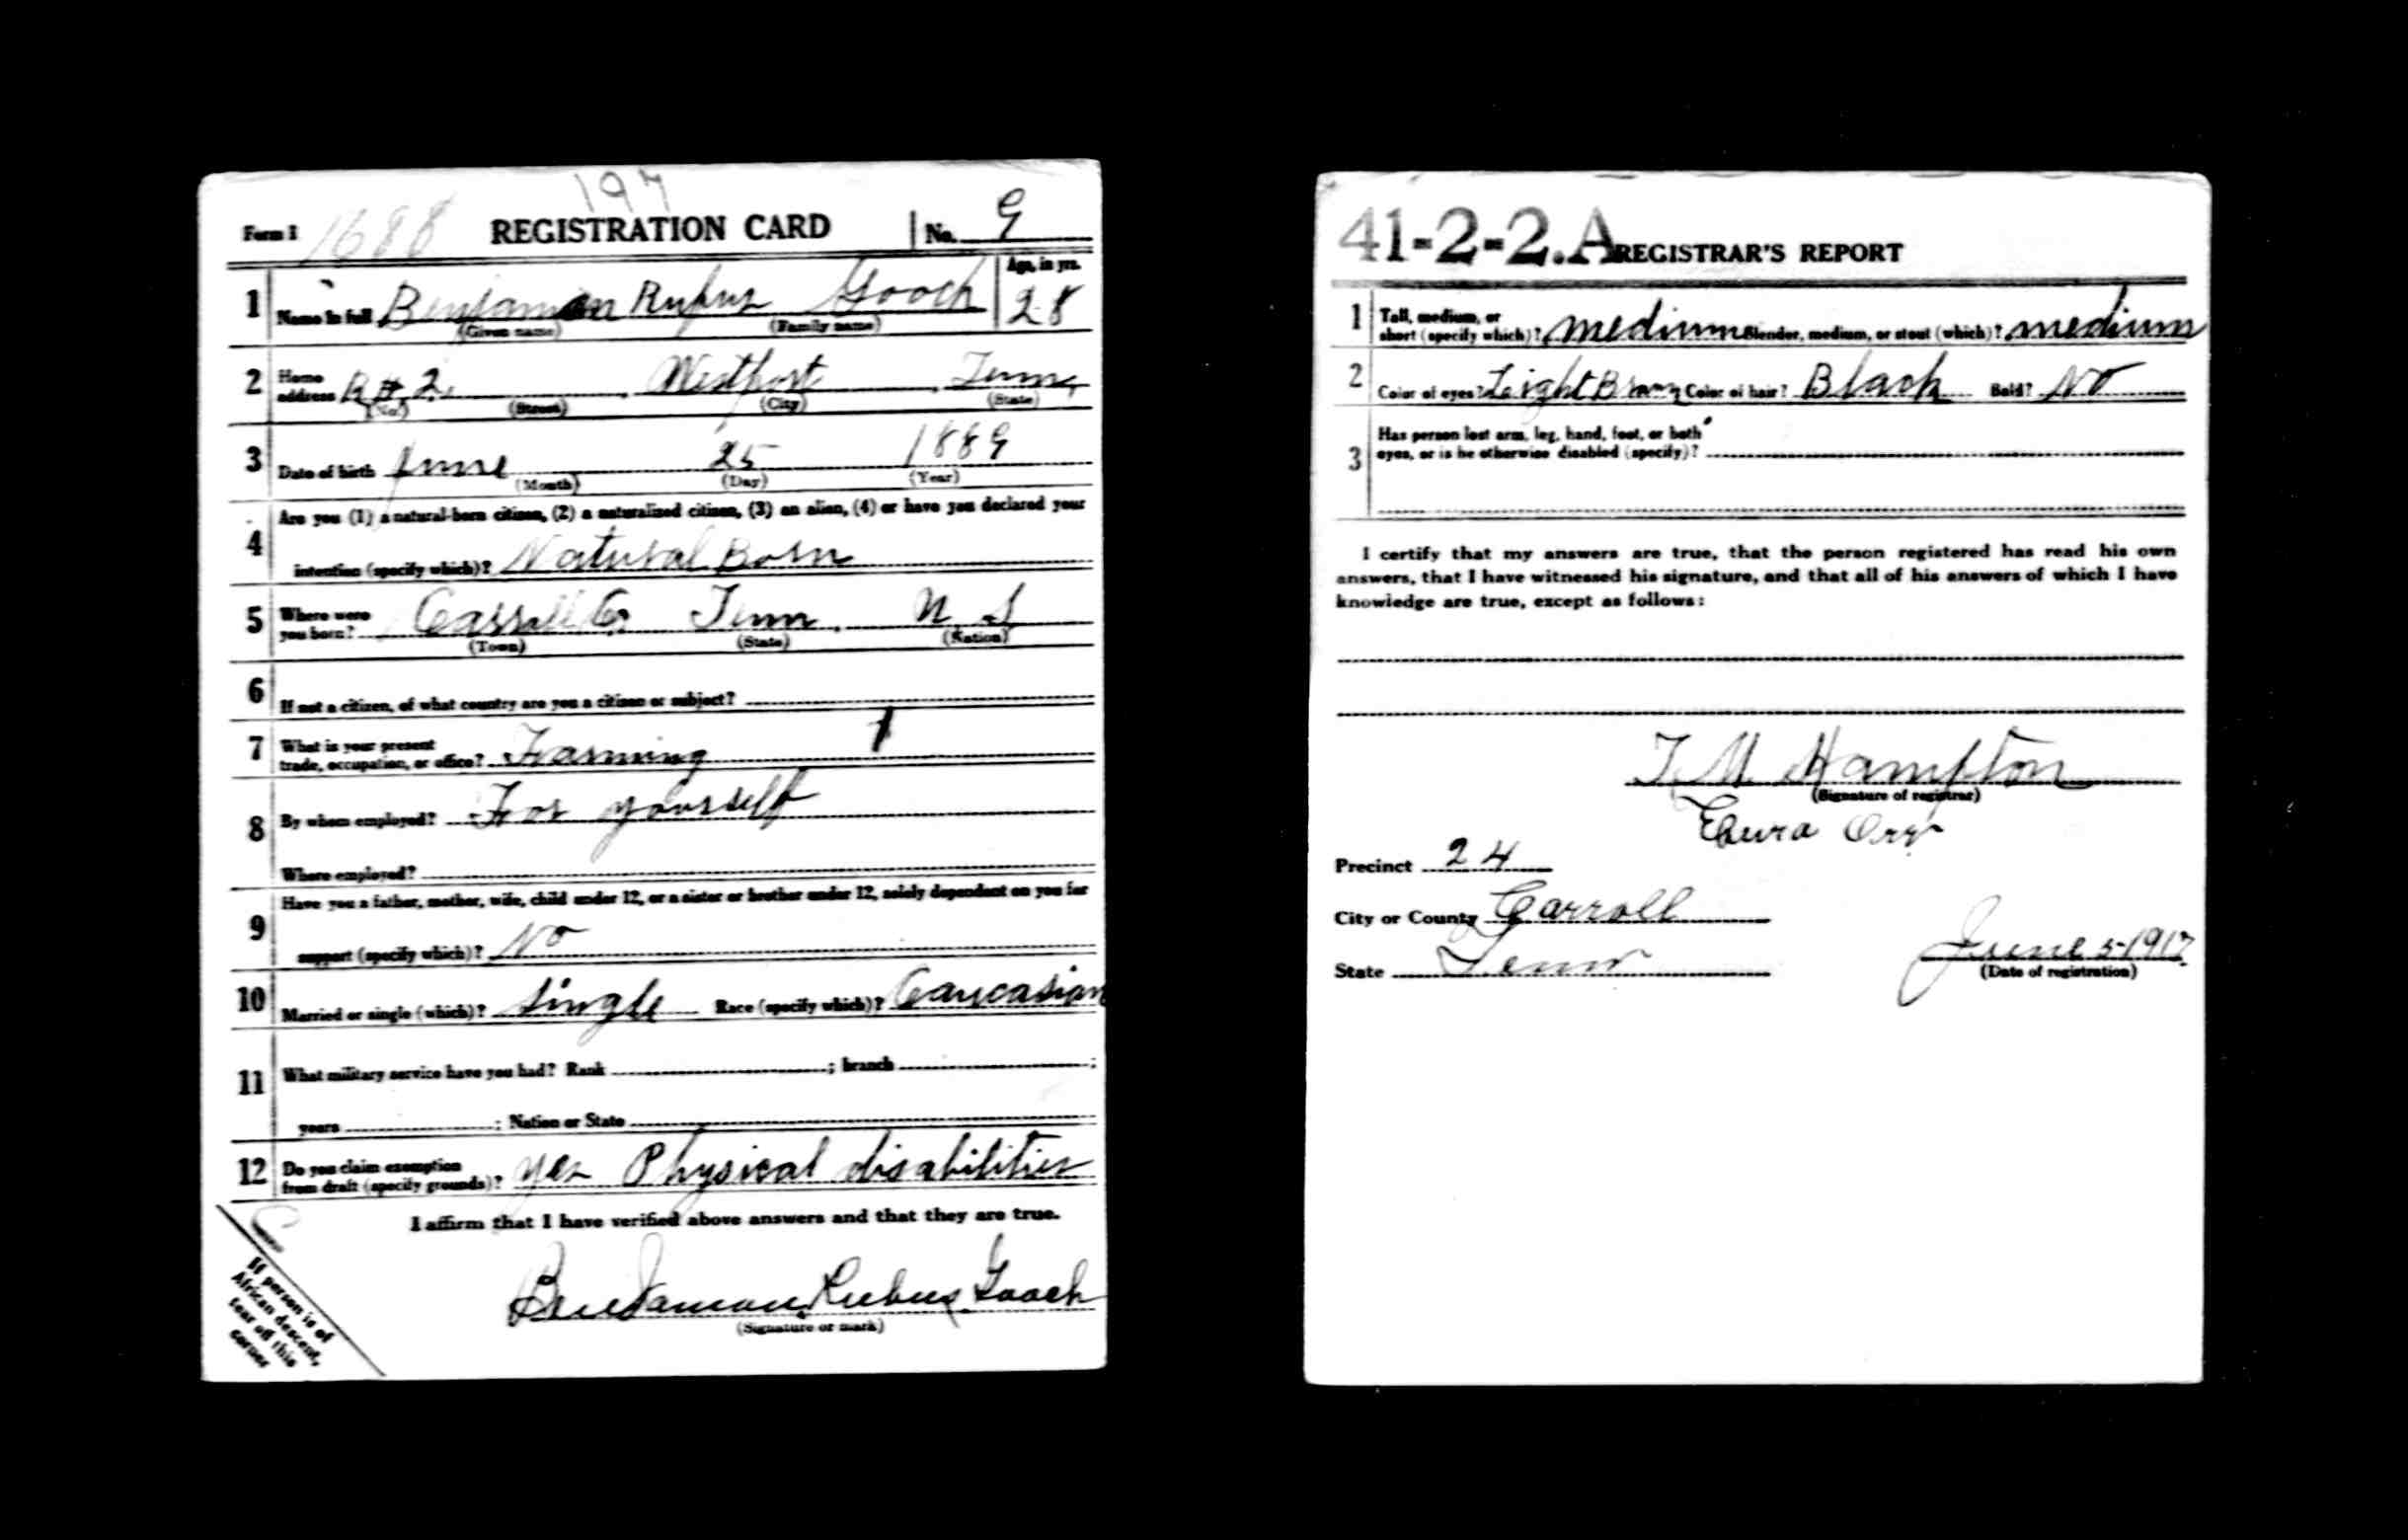 197
Form 1 1688 REGISTRATION CARD No. 9
1 Name in full Benjaman Rufus Gooch Age, in yrs. 28
(Given name) (Family name)
2 Home address R # 2. Westport Tenn,
(No.) (Street) (City) (State)
3 Date of birth June 25 1889
(Month) (Day) (Year)
Are you (1) a natural-born citizen, (2) a naturalized citizen, (3) an alien, (4) or have you declared your
4 intention (specify which)? Natural Born
5 Where were you born? Carroll Co Tenn. U S
(Town) (State) (Nation)
6 If not a citizen, of what country are you a citizen or subject?
7 What is your present trade, occupation, or office? Farming 1
8 By whom employed? For yourself
Where employed?
Have you a father, mother, wife, child under 12, or a sister or brother under 12, solely dependent on you for
9 support (specify which)? No
10 Married or single (which)? Single Race (specify which)? Caucasian
11 What military service have you had? Rank ; branch ;
years ; Nation or State
12 Do you claim exemption from draft (specify grounds)? yes Physical disabilities
I affirm that I have verified above answers and that they are true.
Benjaman Rubus Gooch
(Signature or mark)
If person is of
African descent,
tear off this
corner
41-2-2.A REGISTRAR'S REPORT
1 Tall, medium, or short (specify which)? medium Slender, medium, or stout (which)? medium
2 Color of eyes? Leight Brown Color of hair? Black Bald? No
3 Has person lost arm, leg, hand, foot, or both
eyes, or is he otherwise disabled (specify)?
I certify that my answers are true, that the person registered has read his own
answers, that I have witnessed his signature, and that all of his answers of which I have
knowledge are true, except as follows:
T. M. Hampton
(Signature of registrar)
Orr
Precinct 24
City or County Carroll
State Tenn
June 5-1917
(Date of registration)